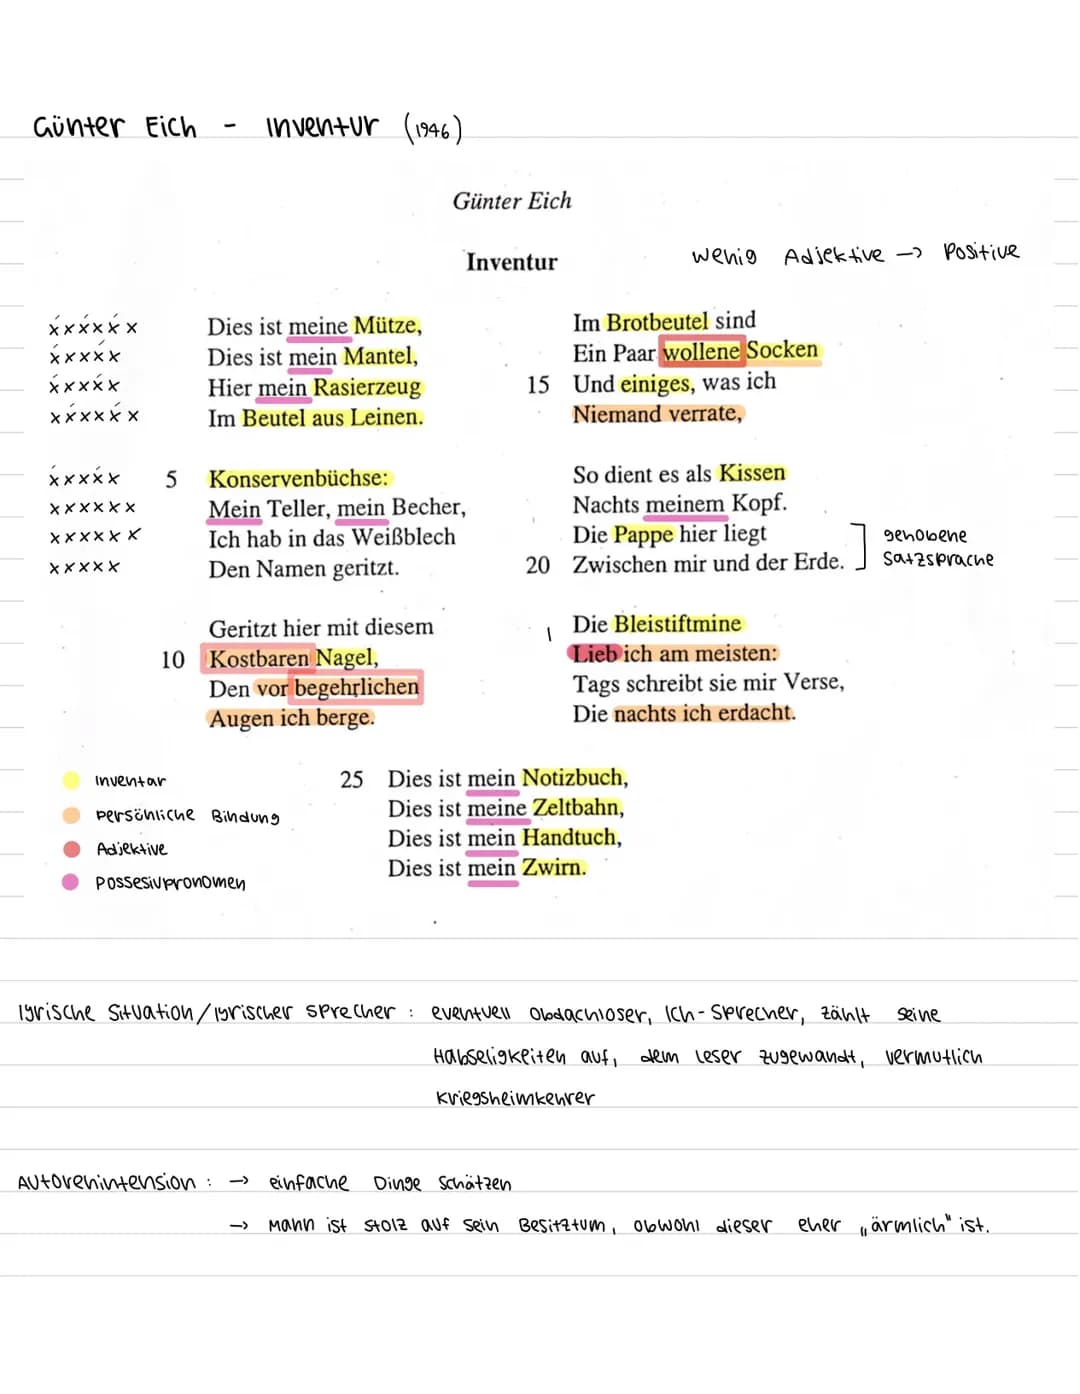 Günter Eich - Inventur (1946)
Günter Eich
Inventur
wenig Adjektive → Positive
x́xx́xx́x
x́xxx́x
x́xxx́x
xx́xxx́x
x́xxx́x
xxxxxx
xxxxxx
xxxxx
Dies ist meine Mütze,
Dies ist mein Mantel,
Hier mein Rasierzeug
Im Beutel aus Leinen.
5 Konservenbüchse:
Mein Teller, mein Becher,
Ich hab in das Weißblech
Den Namen geritzt.
Geritzt hier mit diesem
10 Kostbaren Nagel,
Den vor begehrlichen
Augen ich berge.
Im Brotbeutel sind
Ein Paar wollene Socken
15 Und einiges, was ich
Niemand verrate,
So dient es als Kissen
Nachts meinem Kopf.
Die Pappe hier liegt
20 Zwischen mir und der Erde.
gehobene
Satzsprache
Die Bleistiftmine
Lieb ich am meisten:
Tags schreibt sie mir Verse,
Die nachts ich erdacht.
25 Dies ist mein Notizbuch,
Dies ist meine Zeltbahn,
Dies ist mein Handtuch,
Dies ist mein Zwirn.
Inventar
persönliche Bindung
Adjektive
Possesivpronomen
lyrische Situation/lyrischer Sprecher : eventuell Obdachloser, Ich-Sprecher, zählt seine
Habseligkeiten auf, dem Leser zugewandt, vermutlich
Kriegsheimkehrer
Autorenintension : → einfache Dinge schätzen
→ Mann ist stolz auf sein Besitztum, obwohl dieser eher „ärmlich" ist.